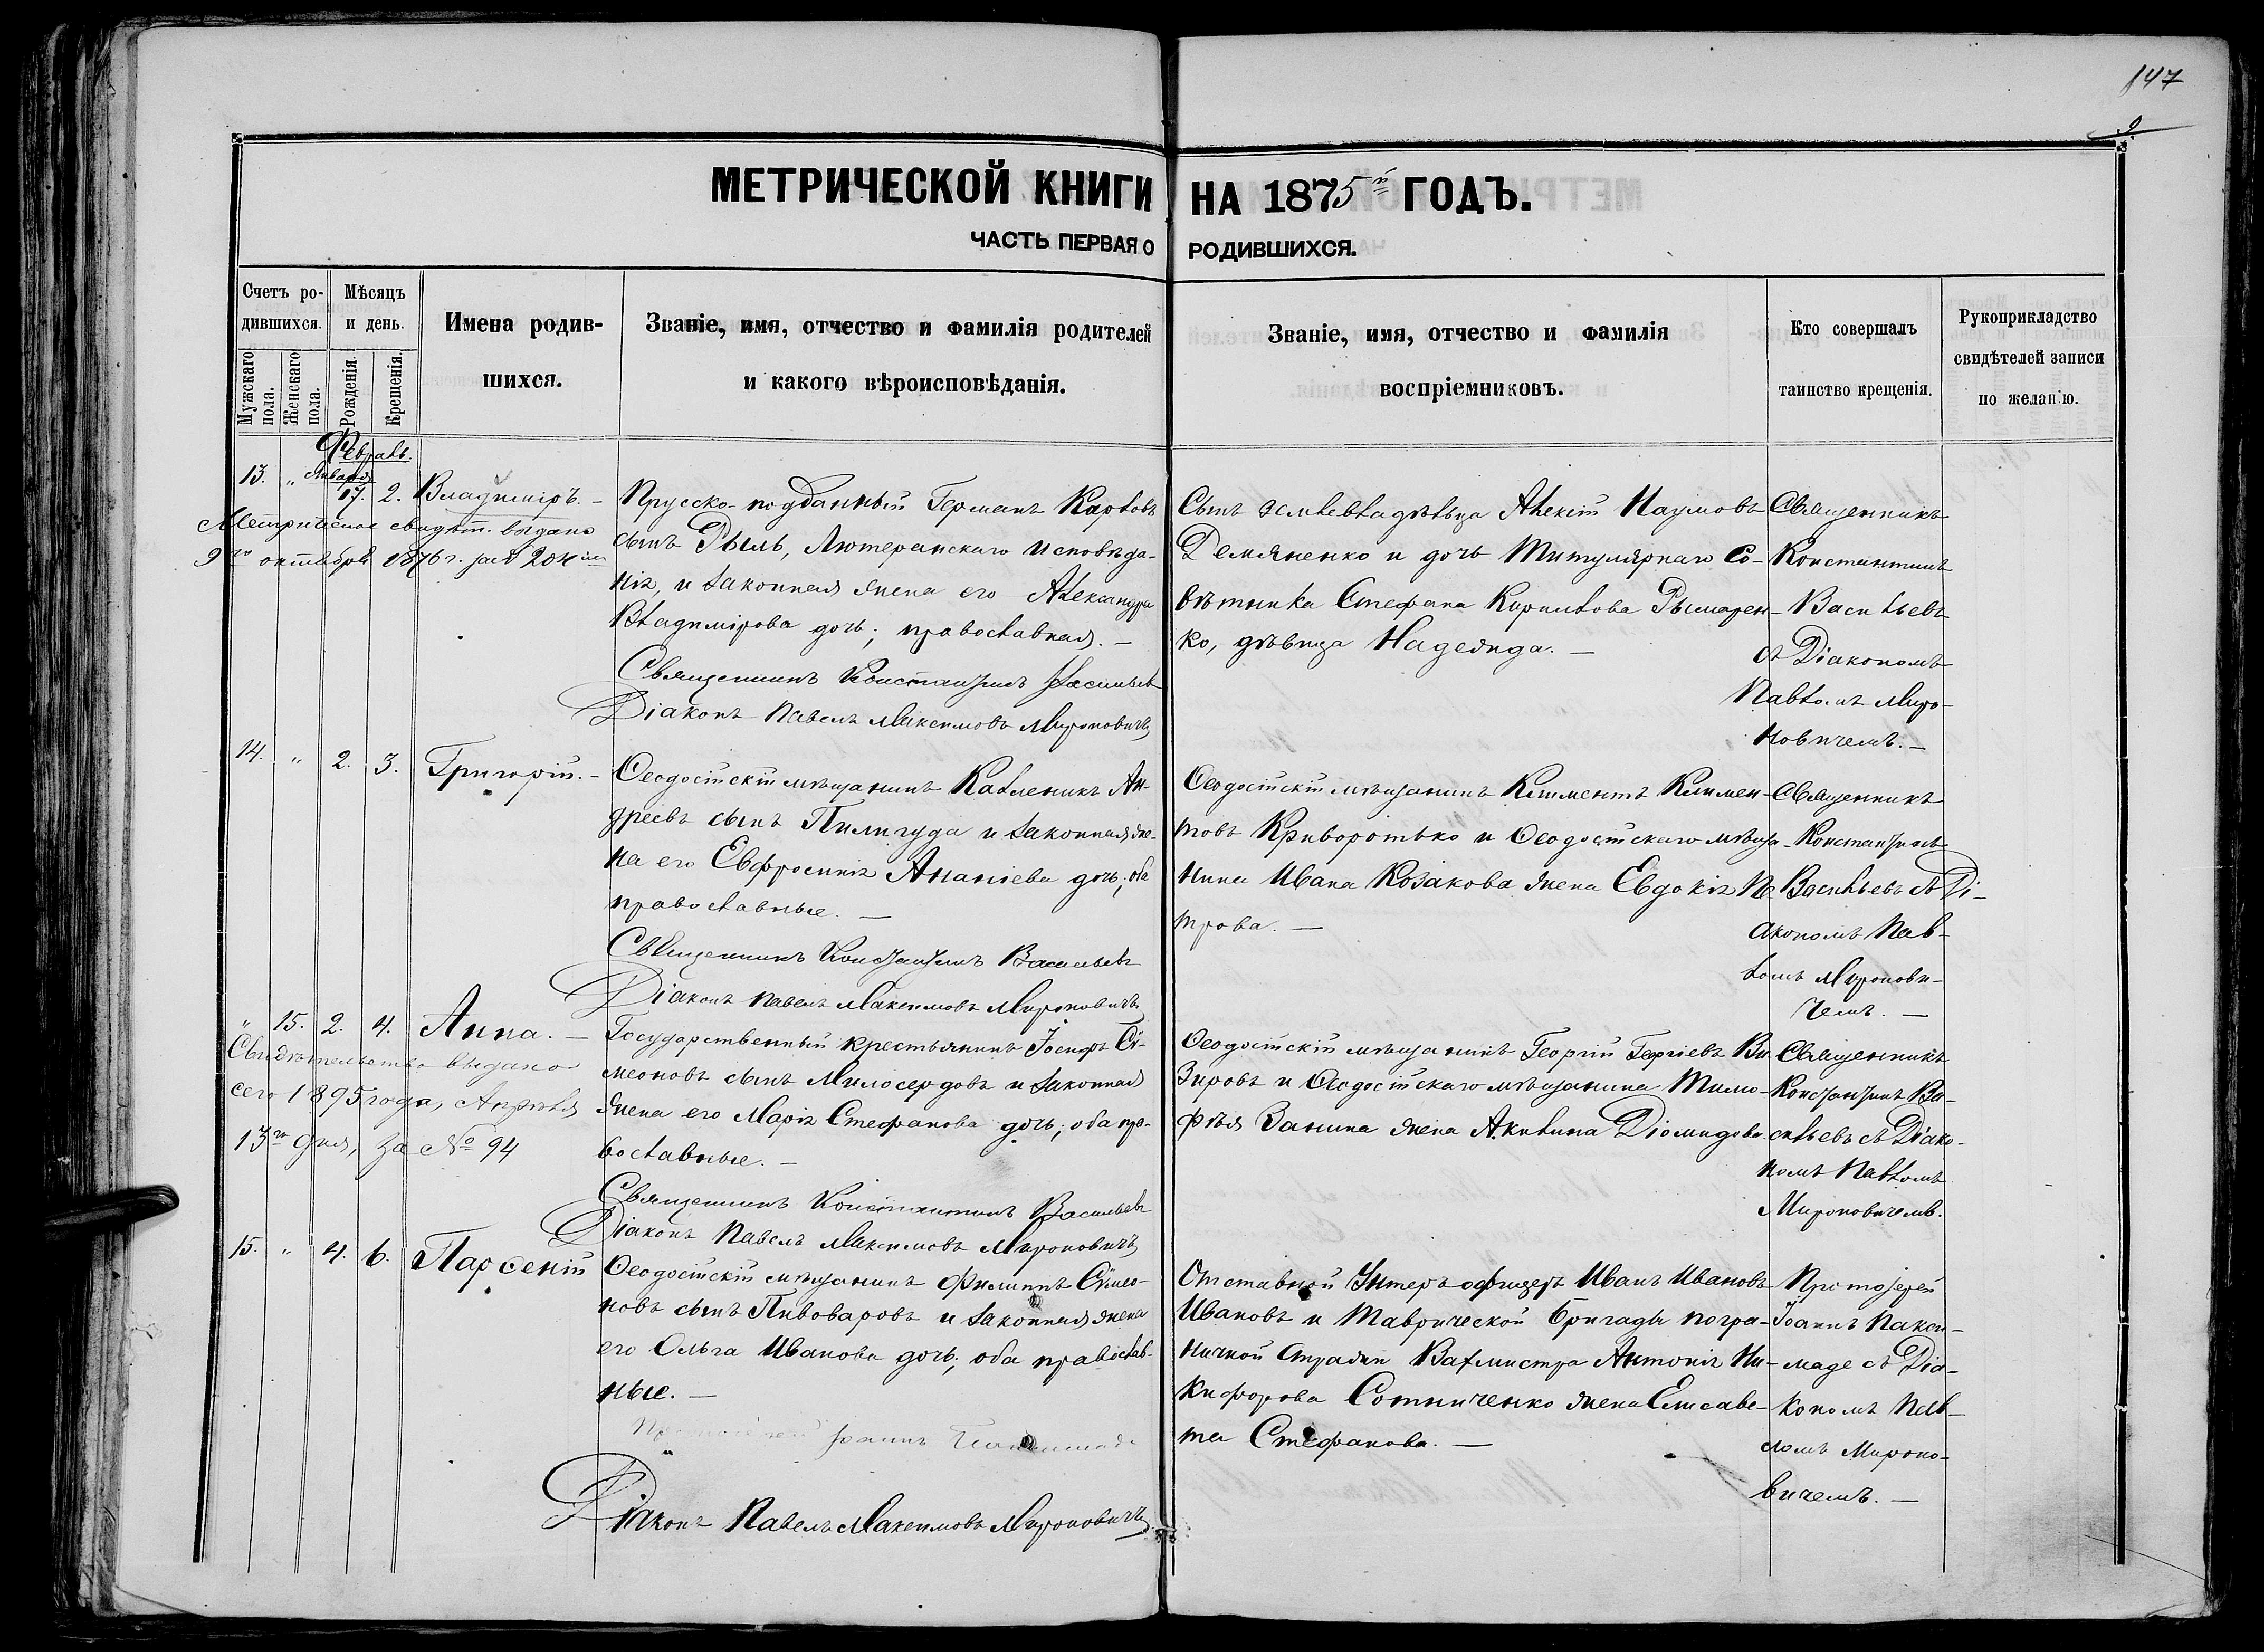 147
9.
МЕТРИЧЕСКОЙ КНИГИ НА 1875й ГОДЪ.
ЧАСТЬ ПЕРВАЯ О РОДИВШИХСЯ.
Счетъ ро-
дившихся.
Мужскаго
пола.
Женскаго
пола.
Мѣсяцъ
и день.
Рожденія.
Крещенія.
Имена родив-
шихся.
Званіе, имя, отчество и фамилія родителей
и какого вѣроисповѣданія.
Званіе, имя, отчество и фамилія
воспріемниковъ.
Кто совершалъ
таинство крещенія.
Рукоприкладство
свидѣтелей записи
по желанію.
Февраль.
13. " Января 17. 2. Владиміръ. –
Метрическое свидѣт. выдано
9го октября 1876 г. за № 204
Прусско-подданный Германъ Карловъ
сынъ Рыль, Лютеранскаго исповѣда-
нія, и законная жена его Александра
Владимірова дочь; православная. –
Священникъ Константинъ Васильевъ
Діаконъ Павелъ Максимовъ Мироновичъ
Сынъ землевладѣльца Алексѣй Наумовъ
Демяненко и дочь Титулярнаго Со-
вѣтника Стефана Кирилова Рымарен-
ко, дѣвица Надежда. –
Священникъ
Константинъ
Васильевъ
съ Діакономъ
Павломъ Миро-
новичемъ. –
14. " 2. 3. Григорій. –
Ѳеодосійскій мѣщанинъ Каленикъ Ан-
дреевъ сынъ Пилигуда и законная же-
на его Евфросинія Ананіева дочь; оба
православные. –
Священникъ Константинъ Васильевъ
Діаконъ Павелъ Максимовъ Мироновичъ
Ѳеодосійскій мѣщанинъ Климентъ Климен-
товъ Криворотько и Ѳеодосійскаго мѣща-
нина Ивана Козакова жена Евдокія Пе
трова. –
Священникъ
Константинъ
Васильевъ съ Ді-
акономъ Пав-
ломъ Миронови-
чемъ. –
" 15. 2. 4. Анна. –
Свидѣтельство выдано
сего 1895 года, Апрѣля
13го дня, за № 94
Государственный крестьянинъ Іосифъ Си-
меоновъ сынъ Милосердовъ и законная
жена его Марія Стефанова дочь; оба пра-
вославные. –
Священникъ Константинъ Васильевъ
Діаконъ Павелъ Максимовъ Мироновичъ
Ѳеодосійскій мѣщанинъ Георгій Георгіевъ Ви
зировъ и Ѳеодосійскаго мѣщанина Тимо-
фѣя Занина жена Акилина Діомидова.
Священникъ
Константинъ Ва-
сильевъ съ Діако-
номъ Павломъ
Мироновичемъ.
15. " 4. 6. Парѳеній
Ѳеодосійскій мѣщанинъ Филиппъ Симео-
новъ сынъ Пивоваровъ и законная жена
его Ольга Иванова дочь; оба православ-
ные. –
Протоіерей Іоаннъ
Діаконъ Павелъ Максимовъ Мироновичъ
Отставной Унтеръ-офицеръ Иванъ Ивановъ
Ивановъ и Таврической бригады погра-
ничной стражи Вахмистра Антонія Ни-
кифорова Сотниченко жена Елисаве-
та Стефанова. –
Протоіерей
Іоаннъ Накси-
маде съ Діа-
кономъ Пав-
ломъ Мироно-
вичемъ. –